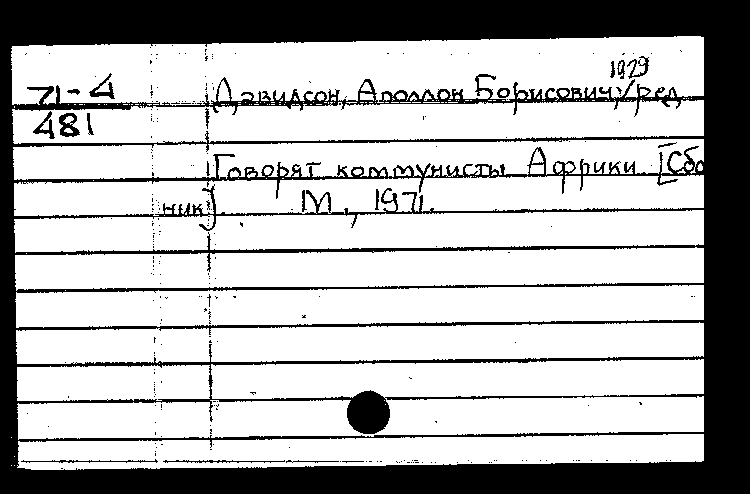 1929
71-4 Давидсон, Аполлон Борисович, ред.
481
Говорят коммунисты Африки. [Сбо
ник]. М., 1971.